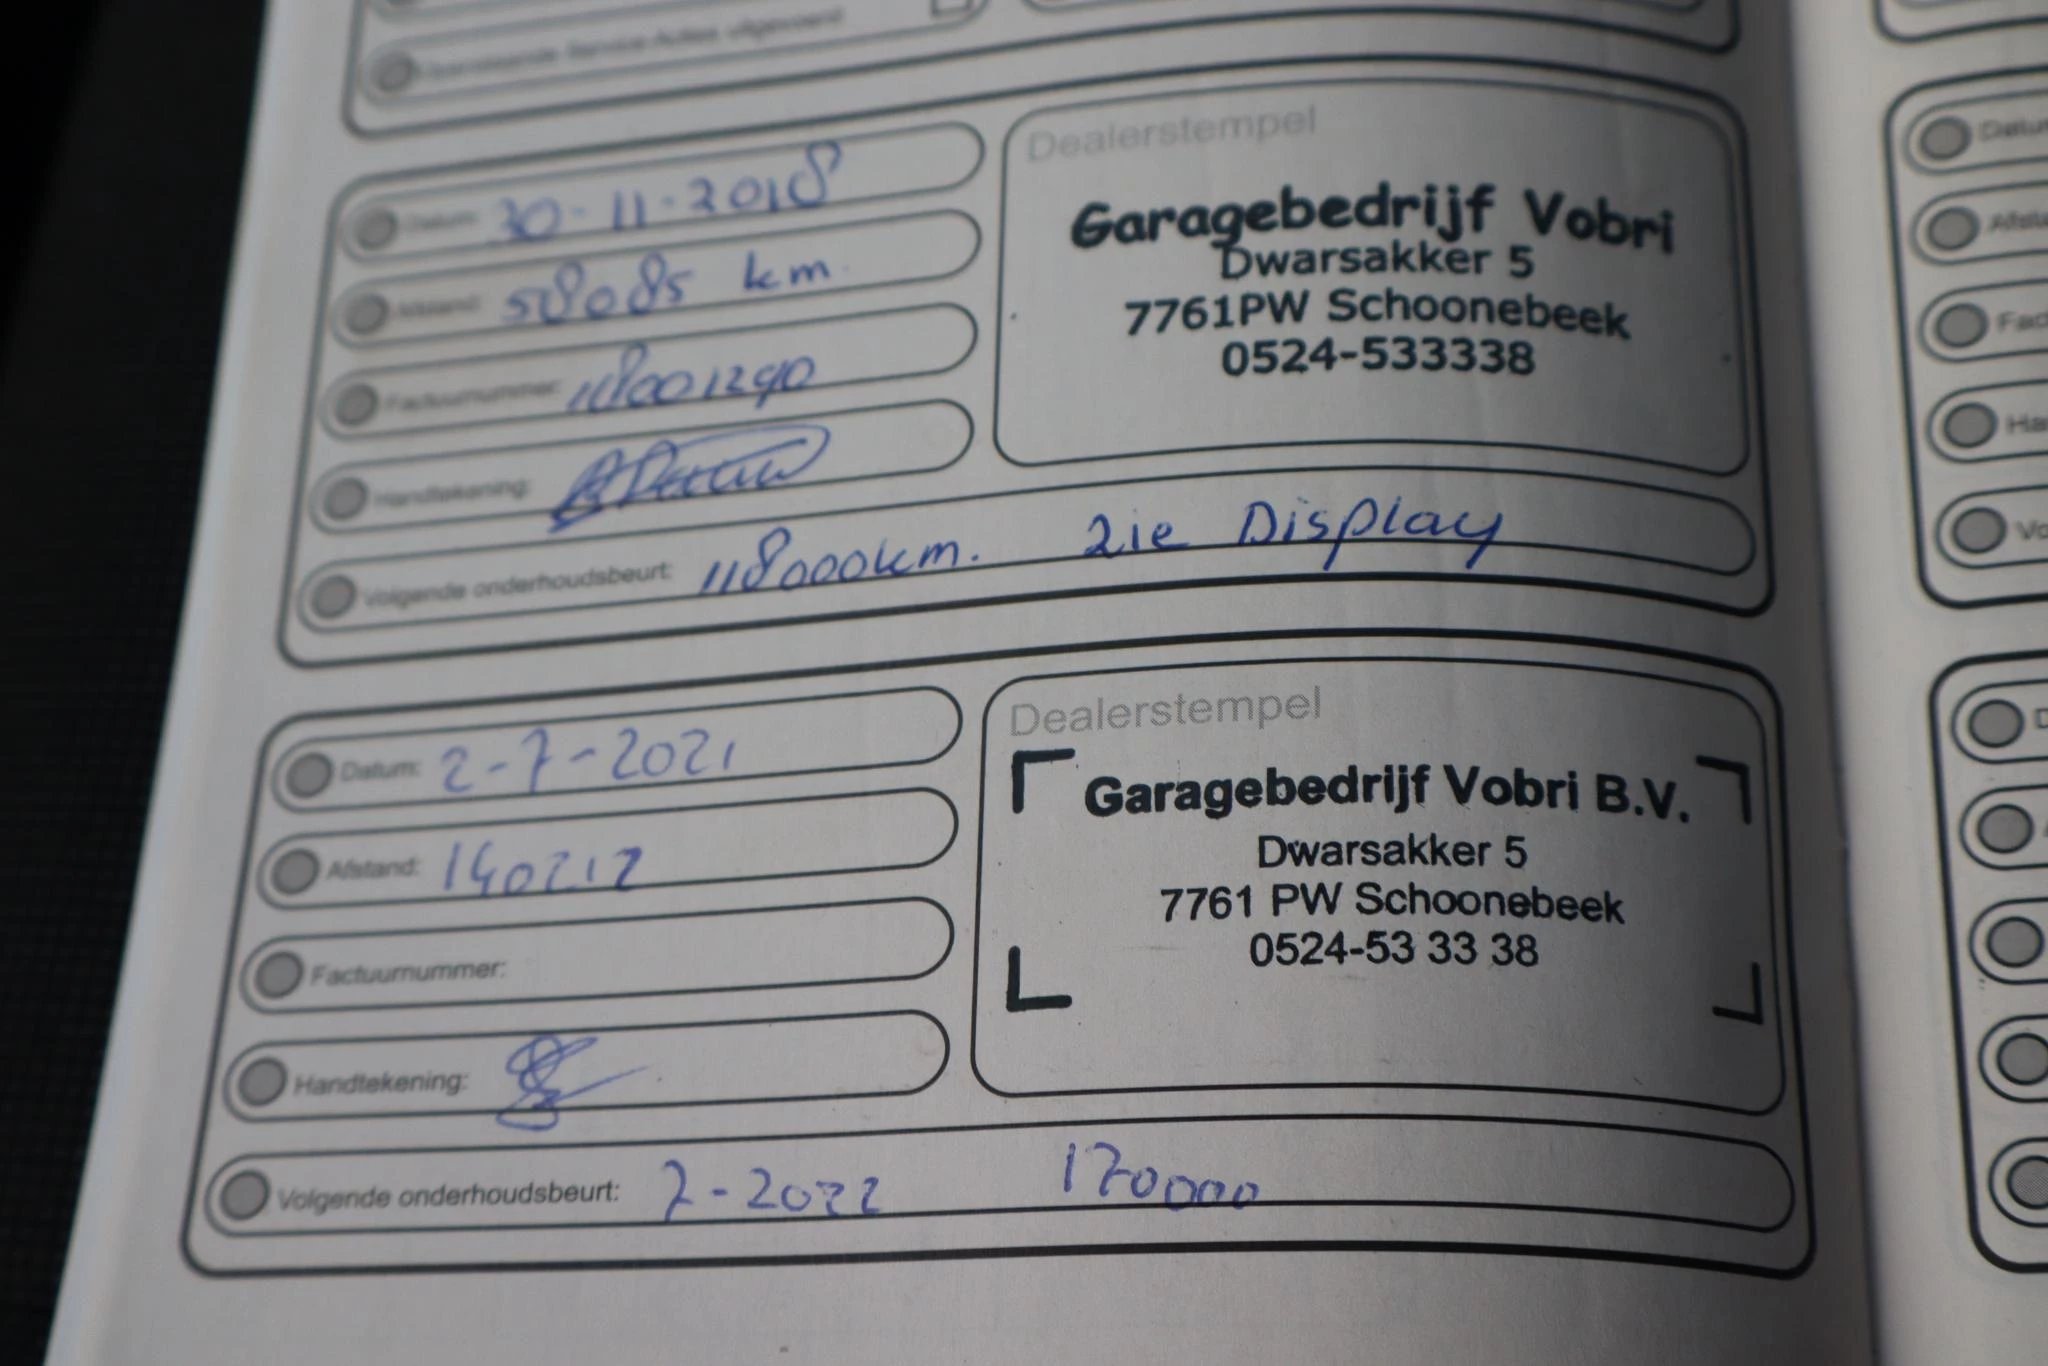 Service-Acties uitgevoerd
Datum: 30-11-2018
Afstand: 58085 km.
Factuurnummer: 118001290
Handtekening:
Volgende onderhoudsbeurt: 118000km. zie Display
Dealerstempel
Garagebedrijf Vobri
Dwarsakker 5
7761PW Schoonebeek
0524-533338
Datum: 2-7-2021
Afstand: 140212
Factuurnummer:
Handtekening:
Volgende onderhoudsbeurt: 7-2022 170000
Dealerstempel
Garagebedrijf Vobri B.V.
Dwarsakker 5
7761 PW Schoonebeek
0524-53 33 38